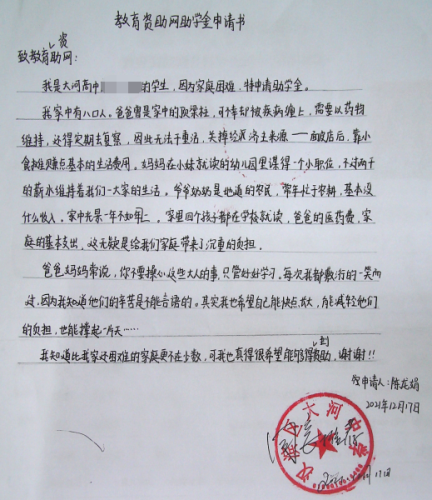 教育资助网助学金申请书
资
致教育助网:
我是大河高中的学生,因为家庭困难,特申请助学金。
我家中有八口人。爸爸曾是家中的顶梁柱,可幸却被疾病缠上,需要以药物
维持,还得定期去复察,因此无法干重活,失掉经济主来源——面皮店后,靠小
食摊赚点基本的生活费用。妈妈在小妹就读的幼儿园里谋得一个小职位,不过两千
的薪水维持着我们一大家的生活。爷爷奶奶是地道的农民,常年忙于农耕,基本没
什么收入。家中光景一年不如一年。家里四个孩子都在学校就读,爸爸的医药费,家
庭的基本支出,这无疑是给我们家庭带来了沉重的负担。
爸爸妈妈常说,你不要操心这些大人的事,只管好好学习。每次我都敷衍的一笑而
过,因为我知道他们的辛苦是不能言语的。其实我也希望自己能快点长大,能减轻他们
的负担,也能撑起一片天……
到
我知道比我家还困难的家庭更不在少数,可我也真得很希望能够得资助,谢谢!!
申请人:陈龙娟
2021年12月17日
汉滨区大河中学